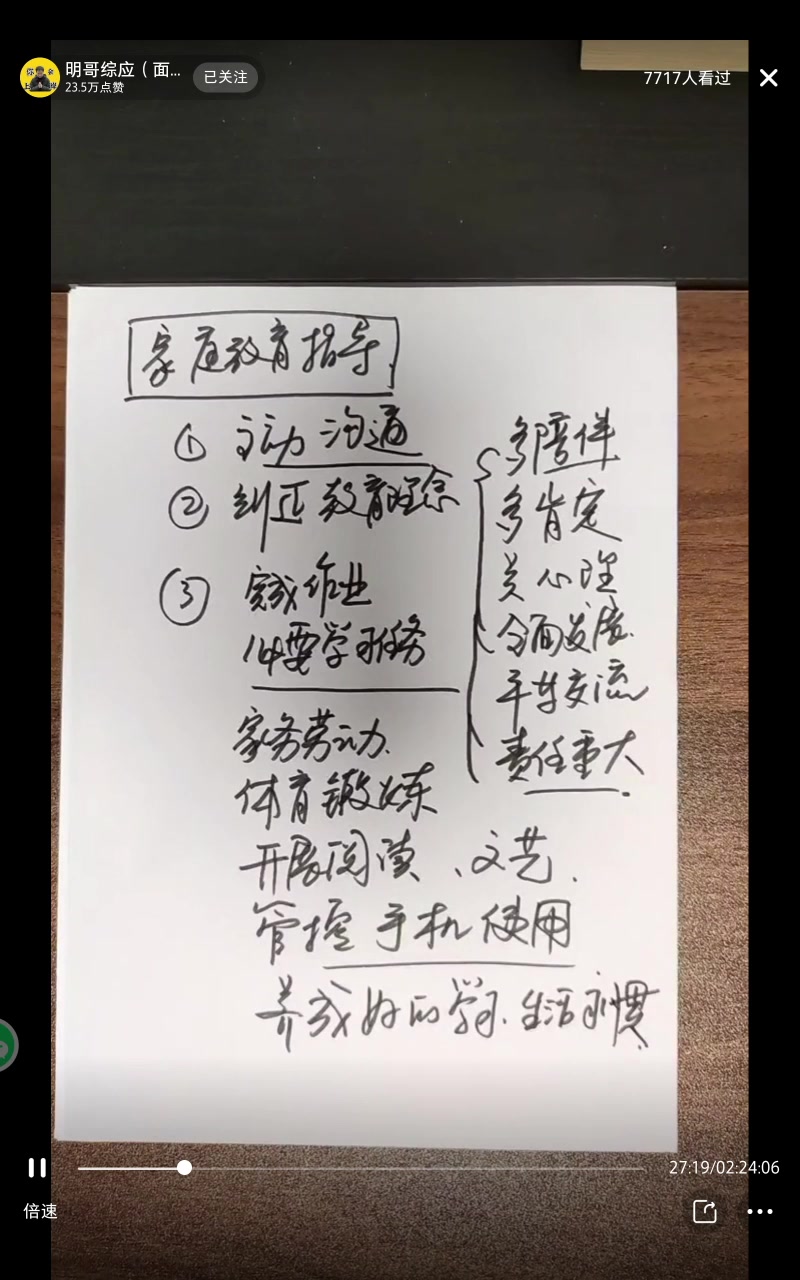 明哥综应（面...
已关注
23.5万点赞
7717人看过
家庭教育指导
① 主动沟通
② 纠正教育理念
多陪伴
多肯定
关心理
全面发展
平等交流
责任重大
③ 完成作业
必要学习任务
家务劳动
体育锻炼
开展阅读、文艺.
管控手机使用
养成好的学习、生活习惯
27:19/02:24:06
倍速